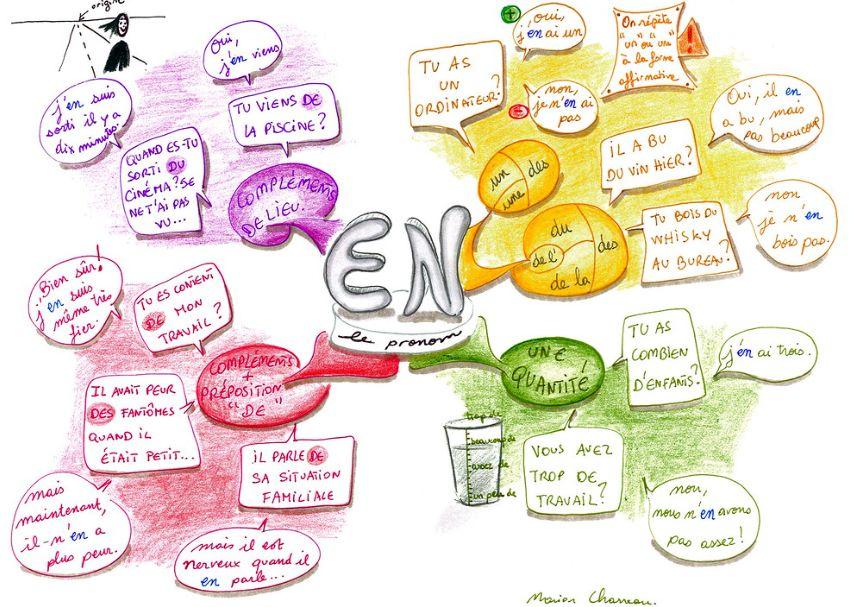 origine
Oui,
j'en viens
TU VIENS DE
LA PISCINE?
j'en suis
sorti il y a
dix minutes.
QUAND ES-TU
SORTI DU
CINÉMA? JE
NE T'AI PAS
VU...
COMPLÉMENTS
DE LIEU.
+
oui,
j'en ai un
TU AS
UN
ORDINATEUR?
non,
je n'en ai
pas
On répète
"un" ou "une"
à la forme
affirmative
!
un
une
des
IL A BU
DU VIN HIER?
Oui, il en
a bu, mais
pas beaucoup
du
de l'
des
de la
TU BOIS DU
WHISKY
AU BUREAU?
non
je n'en
bois pas.
EN
le pronom
Bien sûr!
j'en suis
même très
fier.
TU ES CONTENT
DE MON
TRAVAIL?
COMPLÉMENTS
+
PRÉPOSITION
"DE"
IL AVAIT PEUR
DES FANTÔMES
QUAND IL
ÉTAIT PETIT...
mais
maintenant,
il n'en a
plus peur.
IL PARLE DE
SA SITUATION
FAMILIALE
mais il est
nerveux quand il
en parle...
UNE
QUANTITÉ
TU AS
COMBIEN
D'ENFANTS?
j'en ai trois.
trop de
beaucoup de
assez de
un peu de
VOUS AVEZ
TROP DE
TRAVAIL?
non,
nous n'en avons
pas assez!